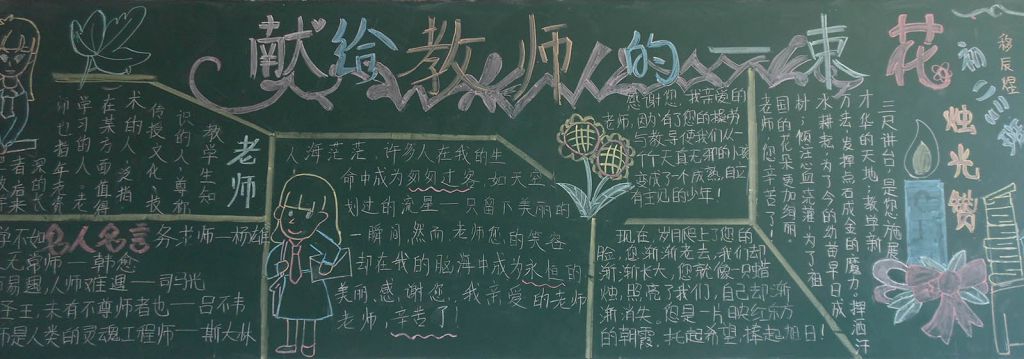 献给教师的一束花
初二三班
烛光赞
老师
教学生知
识的人,尊称
传授文化、技
术的人,泛指
在某方面值得
学习的人。老
名人名言
务求师—杨雄
无常师—韩愈
易遇,人师难遭—司马光
圣王,未有不尊师者也—吕不韦
师是人类的灵魂工程师—斯大林
人海茫茫,许多人在我的生
命中成为匆匆过客,如天空
划过的流星—只留下美丽的
一瞬间,然而,老师,您的笑容
却在我的脑海中成为永恒的
美丽,感谢您,我亲爱的老师
老师,辛苦了!
感谢您,我亲爱的
老师,因为有了您的
变成了一个成熟,自立
有主见的少年!
现在,岁月爬上了您的
脸,您渐渐老去,我们却
渐渐长大,您就像一只蜡
烛,照亮了我们,自己却渐
渐消失,您是一片日映红东方
的朝霞,托起希望,捧起旭日!
三尺讲台,是您施展
才华的天地;教学新
方法,发挥点石成金的魔力;挥洒汗
水耕耘,为了今的幼苗早日成
树;倾注心血浇灌,为了祖
国的花朵更加绚丽。
老师,您辛苦了!